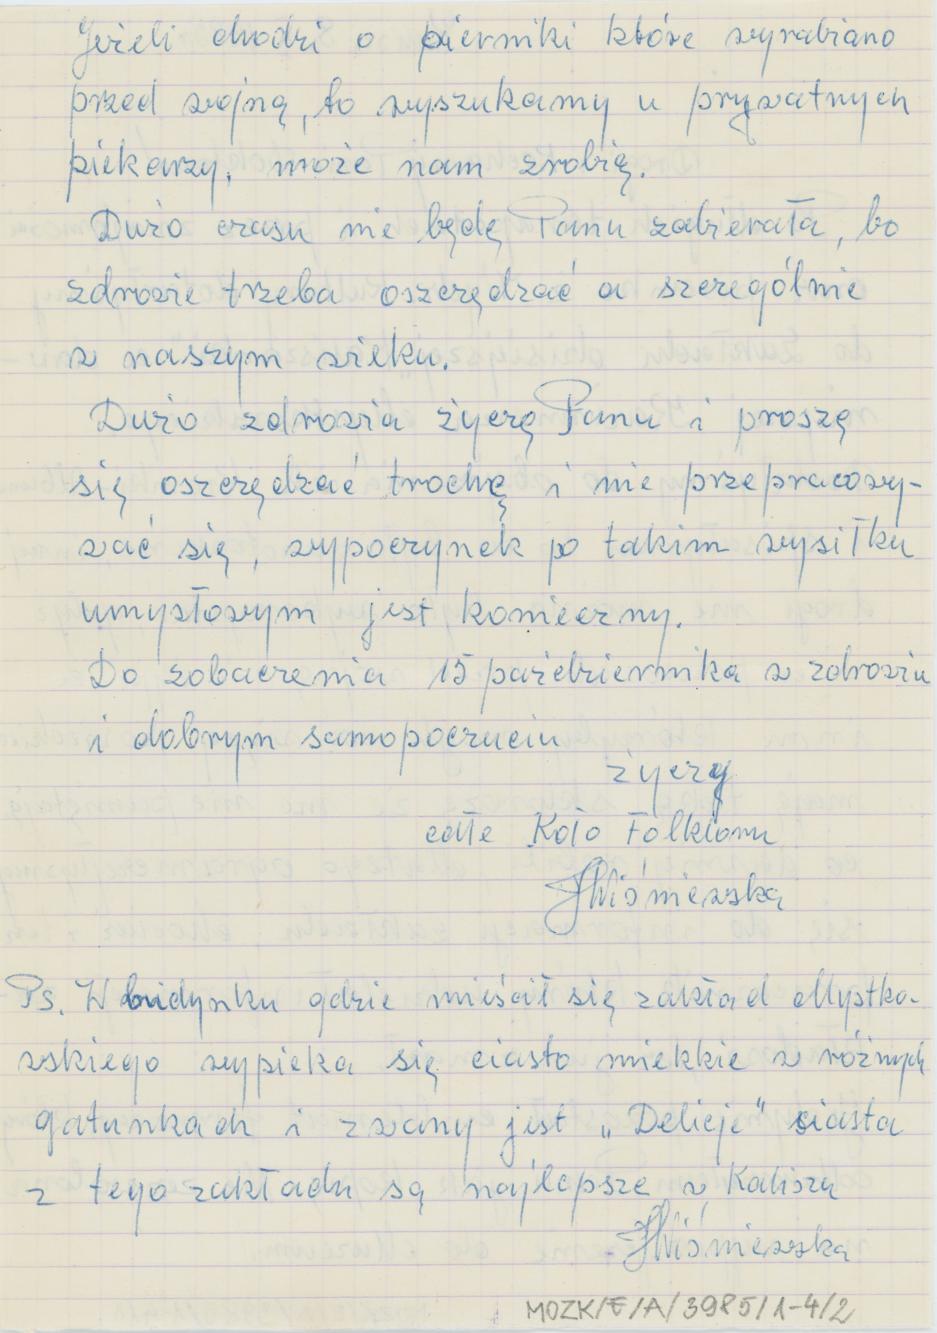 Jeżeli chodzi o pierniki które wyrabiano
przed wojną, to wyszukamy u prywatnych
piekarzy, może nam zrobię.
Dużo czasu nie będę Panu zabierała, bo
zdrowie trzeba oszczędzać a szczególnie
w naszym wieku.
Dużo zdrowia życzę Panu i proszę
się oszczędzać trochę i nie przepracowy-
wać się, wypoczynek po takim wysiłku
umysłowym jest konieczny.
Do zobaczenia 15 października w zdrowiu
i dobrym samopoczuciu
życzy
całe Koło Folkloru
HWiśniewska
Ps. W budynku gdzie mieścił się zakład Mystko-
wskiego wypieka się ciasto miękkie w różnych
gatunkach i zwany jest „Delicje” ciasta
z tego zakładu są najlepsze w Kaliszu
HWiśniewska
MOZK/E/A/3985/1-4/2